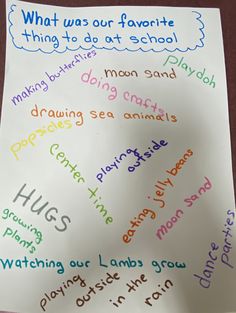 What was our favorite
thing to do at school
making butterflies
moon sand
playdoh
doing crafts
drawing sea animals
popsicles
center time
playing
outside
eating jelly beans
moon sand
HUGS
growing
plants
dance
parties
Watching our Lambs grow
playing
outside
in the
rain